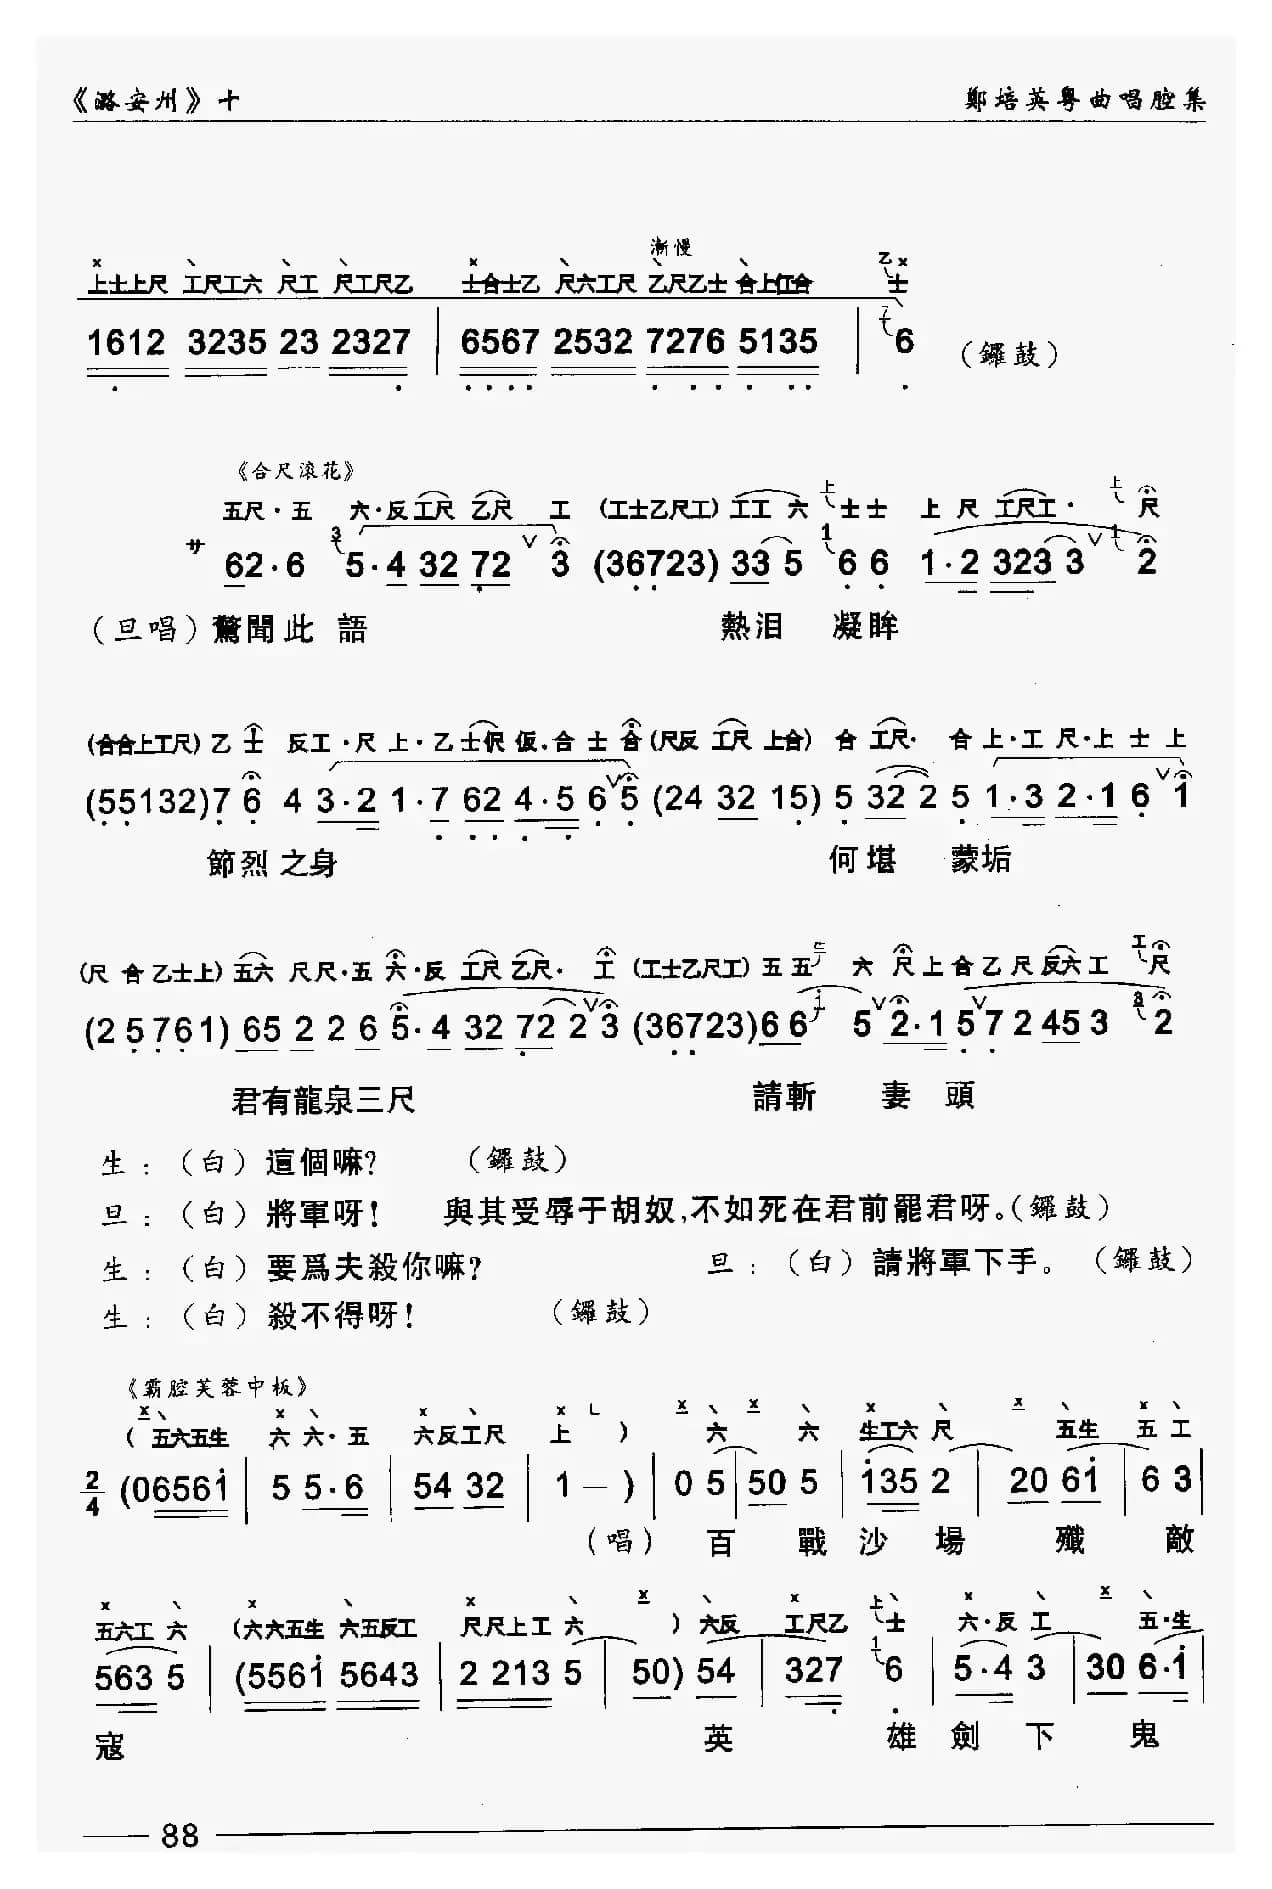 《潞安州》十 鄭培英粵曲唱腔集
漸慢
上士上尺 工尺工六 尺工 尺工尺乙 士合士乙 尺六工尺 乙尺乙士 合上仜合 乙士
1612 3235 23 2327 | 6567 2532 7276 5135 | 7 6 (鑼鼓)
《合尺滾花》
五尺·五 六·反工尺 乙尺 工 (工士乙尺工) 工工 六 上士士 上 尺 工尺工· 上尺
サ 62·6 3 5·4 32 72 3 (36723) 33 5 1 6 6 1·2 323 3 1 2
(旦唱) 驚聞此 語 熱泪 凝眸
(合合上工尺) 乙 士 反工·尺 上·乙 士伬 仮·合 士 合 (尺反 工尺 上合) 合 工尺· 合 上·工 尺·上 士 上
(55132) 7 6 4 3·2 1·7 62 4·5 6 5 (24 32 15) 5 32 2 5 1·3 2·1 6 1
節烈之身 何堪 蒙垢
(尺 合 乙士上) 五六 尺尺·五 六·反 工尺 乙尺· 工 (工士乙尺工) 五五 六 尺上合乙尺反六工 工尺
(25761) 65 2 2 6 5·4 32 72 2 3 (36723) 66 i 5 2·1 57 2 45 3 3 2
君有龍泉三尺 請斬 妻 頭
生:(白) 這個嘛? (鑼鼓)
旦:(白) 將軍呀! 與其受辱于胡奴,不如死在君前罷君呀。(鑼鼓)
生:(白) 要爲夫殺你嘛? 旦:(白) 請將軍下手。 (鑼鼓)
生:(白) 殺不得呀! (鑼鼓)
《霸腔芙蓉中板》
( 五六五生 六 六·五 六反工尺 上 ) 六 六 生工六 尺 五生 五 工
2/4 (06561 | 5 5·6 | 54 32 | 1 — ) | 0 5 | 50 5 | 135 2 | 20 61 | 6 3 |
(唱) 百 戰 沙 場 殲 敵
五六工 六 (六六五生 六五反工 尺尺上工 六 ) 六反 工尺乙 上士 六·反 工 五·生
563 5 | (5561 5643 | 2 213 5 | 50) 54 | 327 1 6 | 5·4 3 | 30 6·1 |
寇 英 雄 劍 下 鬼
88